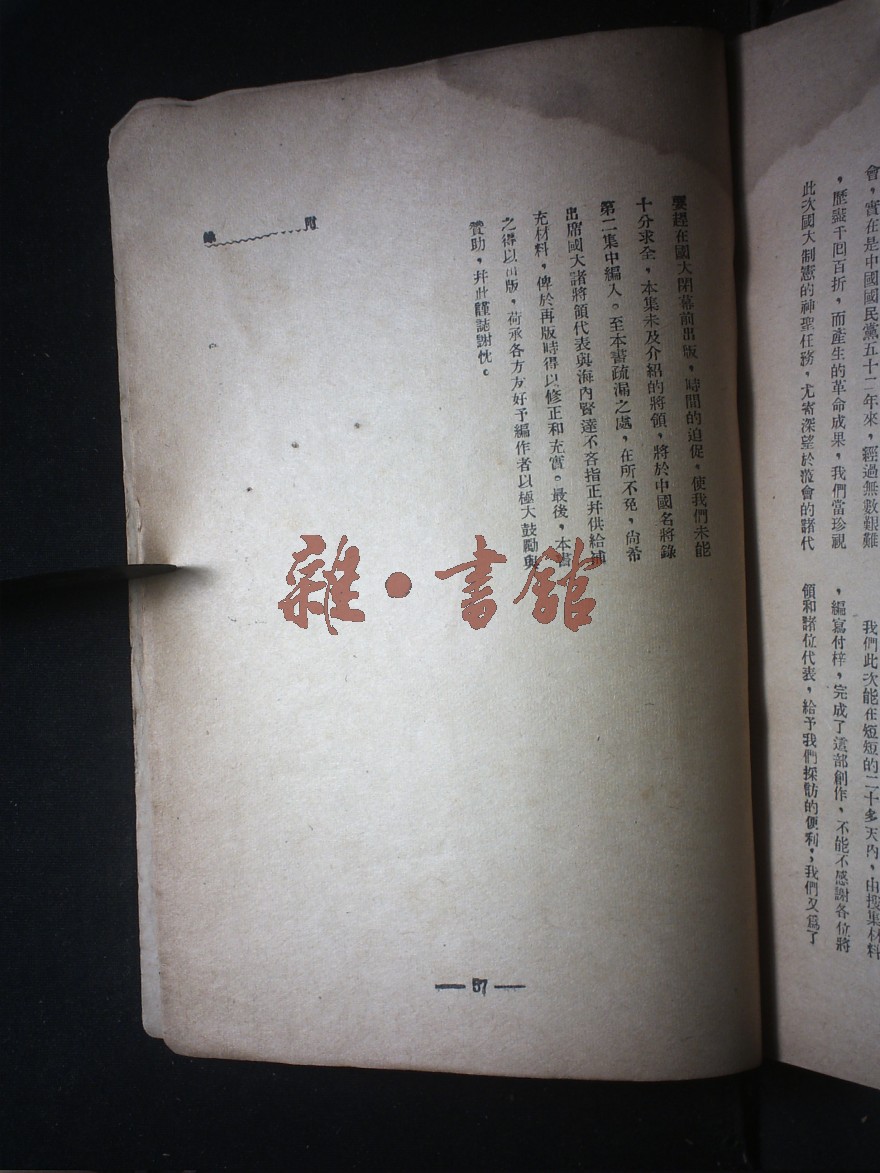 會，實在是中國國民黨五十二年來，經過無數艱難
，歷盡千囘百折，而產生的革命成果，我們當珍視
此次國大制憲的神聖任務，尤寄深望於蒞會的諸代
我們此次能在短短的二十多天內，由搜集材料
，編寫付梓，完成了這部創作，不能不感謝各位將
領和諸位代表，給予我們採訪的便利，我們又爲了
要趕在國大閉幕前出版，時間的迫促，使我們未能
十分求全，本集未及介紹的將領，將於中國名將錄
第二集中編入。至本書疏漏之處，在所不免，尙希
出席國大諸將領代表與海內賢達不吝指正幷供給補
充材料，俾於再版時得以修正和充實。最後，本書
之得以出版，荷承各方友好予編作者以極大鼓勵與
贊助，幷此謹誌謝忱。
附錄
— 87 —
雜·書館